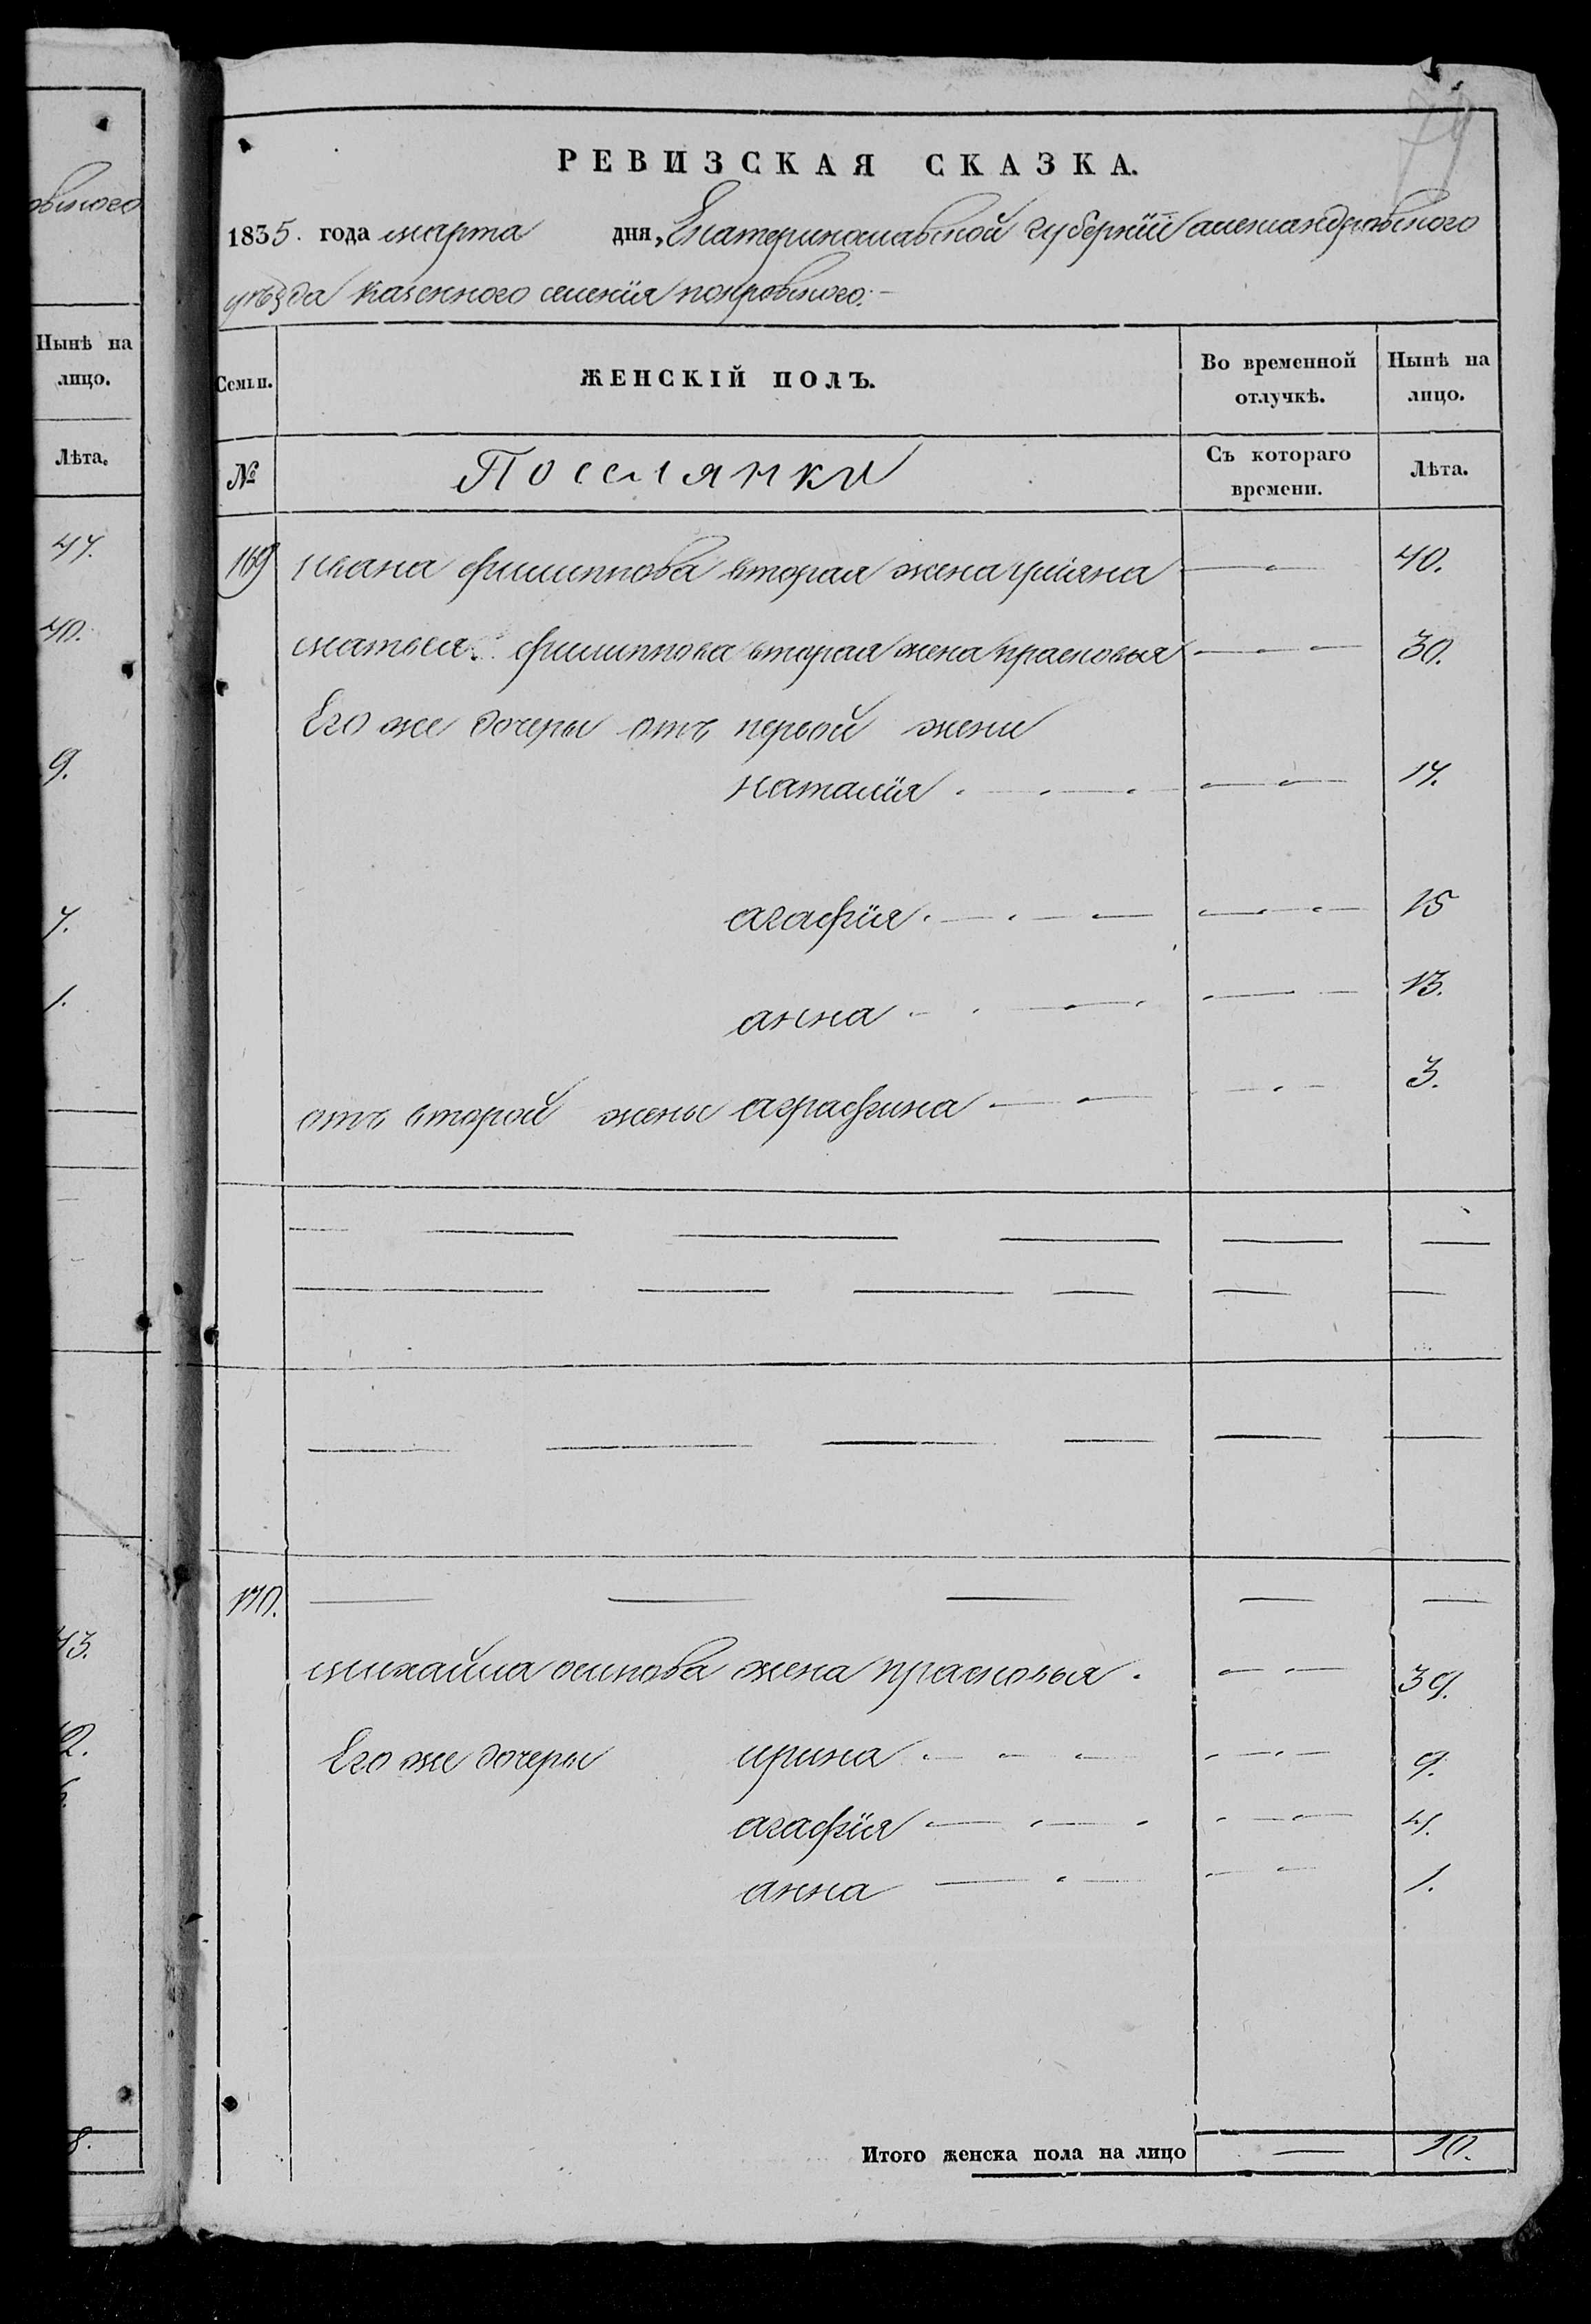 79
РЕВИЗСКАЯ СКАЗКА.
1835. года марта дня, Екатеринославской губернїи александровского
уѣзда казенного селенїя покровского.
Семьи. ЖЕНСКІЙ ПОЛЪ. Во временной отлучкѣ. Нынѣ на лицо.
№ Поселянки Съ котораго времени. Лѣта.
169 ивана филиппова вторая жена улияна 40.
матвея филиппова вторая жена прасковья 30.
Его же дочеры отъ первой жени
наталїя 17.
агафїя 15
анна 13.
отъ второй жены аграфина 3.
170.
михайла осипова жена прасковья. 39.
Его же дочеры ирина 9.
агафїя 4.
анна 1.
Итого женска пола на лицо 10.
овского
Нынѣ на
лицо.
Лѣта.
47.
40.
9.
7.
1.
43.
2.
8.